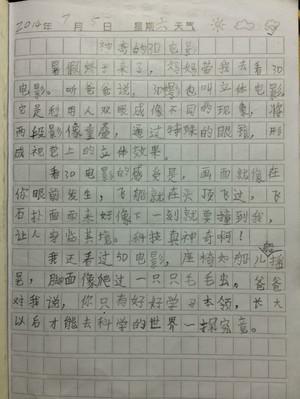 2014年7月5日 星期六 天气
神奇的3D电影
暑假终于来了，妈妈带我去看3D
电影。听爸爸说，3D电影也叫立体电影
它是利用人双眼成像不同的现象，将
两段影像重叠，通过特殊的眼镜，形
成视觉上的立体效果。
看3D电影的感觉是，画面就像在
你眼前发生，飞船就在头顶飞过，飞
石扑面而来好像下一刻就要撞到我，
让人身临其境。科技真神奇啊！
我还看过5D电影，座椅如婴儿摇
晃，脚面像爬过一只只毛毛虫。爸爸
对我说，你只有好好学习本领，长大
以后才能去科学的世界一探究竟。